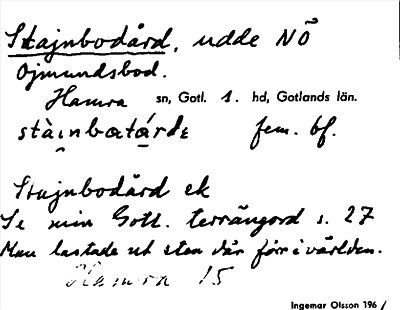 Stajnbodård, udde NÖ
Ojmundsbod.
Hamra sn, Gotl. 1. hd, Gotlands län.
stàinbatárdɛ fem. bf.
Stajnbodård ek
Se min Gotl. terrängord s. 27
Man lastade ut sten där förr i världen.
Hamra 15
Ingemar Olsson 196 /